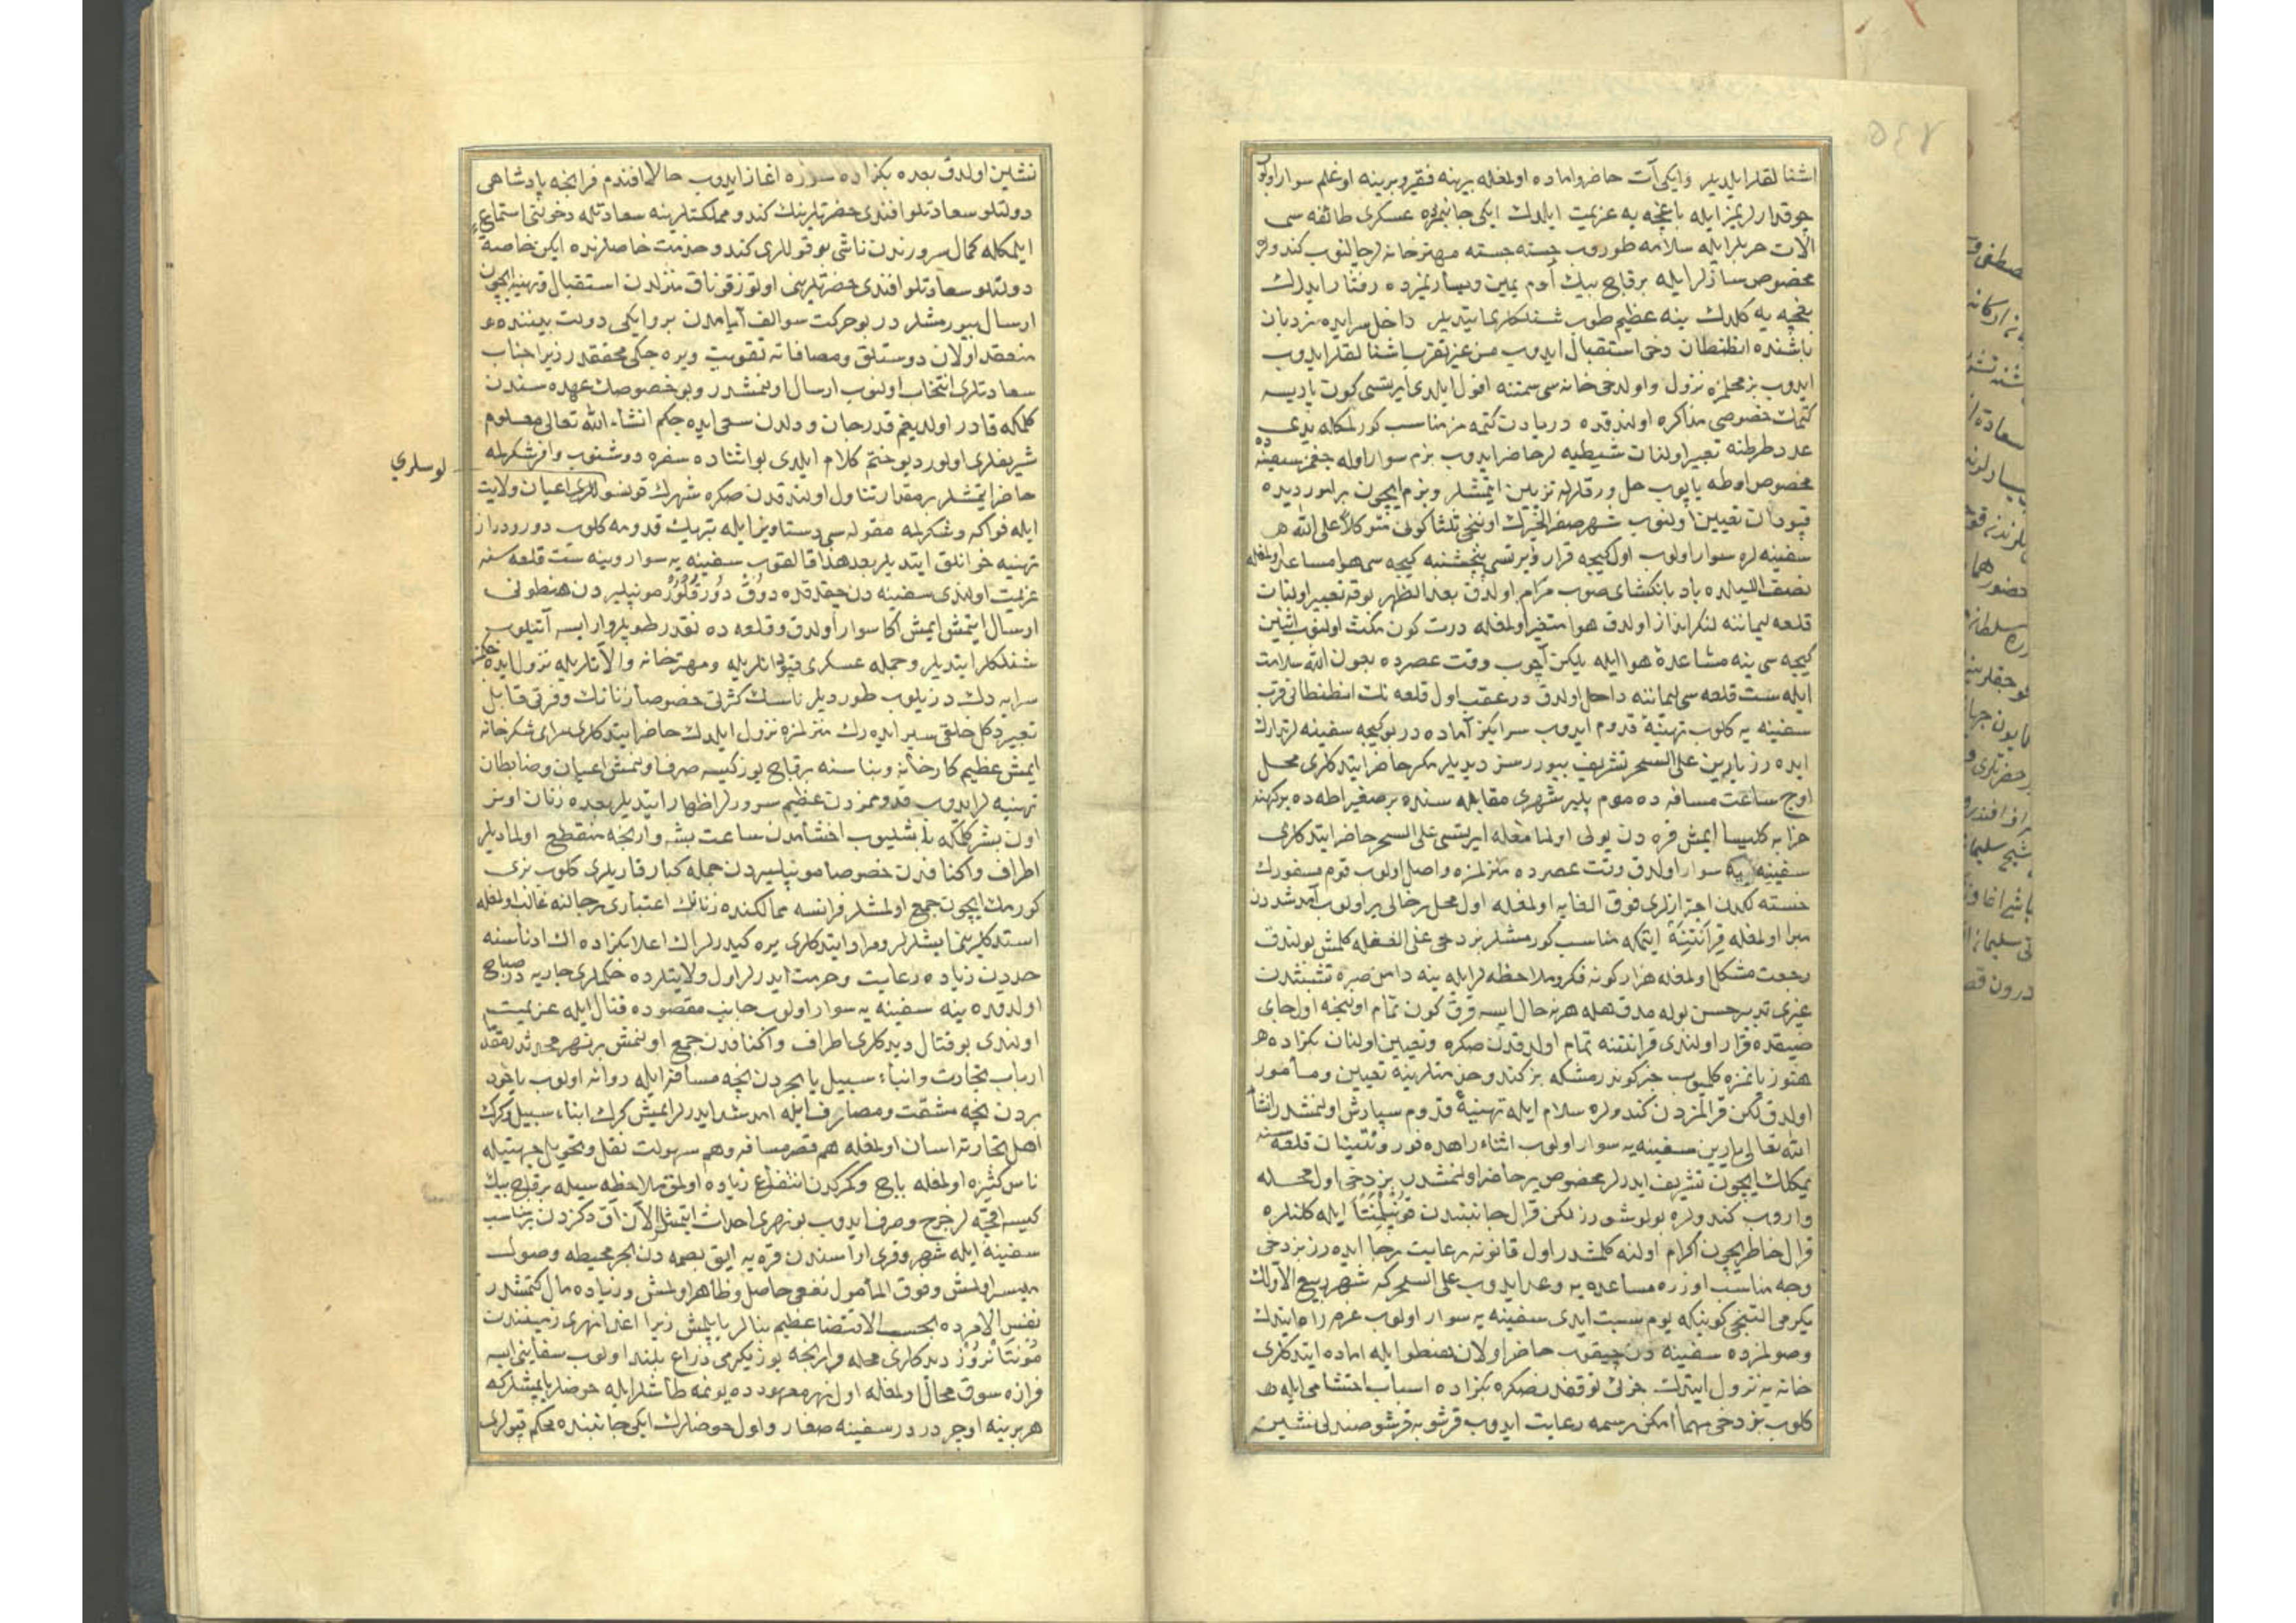 اشنالقلر ايلديلر و ايكى آت حاضر و اماده اولمغله بيرينه فقير و بيرينه اوغلم سوار اولوب
چوقدارلريمز ايله باغچه يه عزيمت ايلدك ايكى جانبمزده عسكرى طائفه سى
الات حربلر ايله سلامه طوروب جسته جسته مهترخانه لر چالنوب كندولره
مخصوص سازلر ايله برقاچ بيك آدم يمين و يساريمزده رفتار ايدرك
بغچه يه كلدك ينه عظيم طوب شنلكلرى ايتديلر داخل سرايده نردبان
باشنده انطنطان دخى استقبال ايدوب من غير تقريب اشنالقلر ايدوب
ايدوب بز محلمزه نزول و اولدخى خانه سى سمتنه افول ايلدى ايرتسى كون پاريسه
كتمك خصوصى مذاكره اولندقده دريادن كتمه مز مناسب كورلمكله يدى
عدد طرطنه تعبير اولنان شيطيه لر حاضر ايدوب بزم سوار اوله جغمز سفينه ده
مخصوص اوطه ياپوب حل و ورقلرله تزيين ايتمشلر و بزم ايچون بر امور ديده
قپودان تعيين اولنوب شهر صفر الخيرك اوننجى ثلثا كونى متوكلاً على الله
سفينه لره سوار اولوب اول كيجه قرار و ايرتسى پنجشنبه كيجه سى هوا مساعد اولمغله
نصف الليلده بادبانكشاى صوب مرام اولدق بعد الظهر بوقه تعبير اولنان
قلعه ليماننه لنكرانداز اولدق هوا متغير اولمغله درت كون مكث اولنوب اثنين
كيجه سى ينه مشاعدۀ هوا ايله يلكن آچوب وقت عصرده بعون الله سلامت
ايله ست قلعه سى ليماننه داخل اولدق در عقب اول قلعه نك انطنطانى قرب
سفينه يه كلوب تهنيۀ قدوم ايدوب سرايكز آماده در بو كيجه سفينه لر تدارك
ايده رز يارين على السحر تشريف بيوررسز ديديلر مكر حاضر ايتدكلرى محل
اوچ ساعت مسافه ده مومپلير شهرى مقابله سنده بر صغير اطه ده بر كهنه
خرابه كليسا ايمش قره دن يولى اولمامغله ايرتسى على السحر حاضر ايتدكلرى
سفينه يه سوار اولدق وقت عصرده منزلمزه واصل اولوب قوم مسفورك
خسته لكدن احترازلرى فوق الغايه اولمغله اول محل بر خالى ير اولوب آمد شددن
مبرا اولمغله قرانتينه ايتمكه مناسب كورمشلر بز دخى على الغفله كلمش بولندق
رجعت مشكل اولمغله هزار كونه فكر و ملاحظه لر ايله ينه دامن صبره تشبثدن
غيرى تدبير حسن بوله مدق هله هر نه حال ايسه قرق كون تمام اولنجه اول جاى
ضيقده قرار اولندى قرانتنه تمام اولدقدن صكره و تعيين اولنان بكزاده
هنوز يانمزه كلميوب خبر كوندرمشكه بز كندو خدمتلرينه تعيين و مأمور
اولدق لكن قرالمزدن كندولره سلام ايله تهنيۀ قدوم سپارش اولنمشدر انشا
الله تعالى يارين سفينه يه سوار اولوب اثناء راهده فورونتنيان قلعه سنه
يمكلك ايچون تشريف ايدرلر مخصوص ير حاضر اولنمشدر بز دخى اول محله
واروب كندولره بولوشورز لكن قرال جانبندن قونپلمنتا ايله كلنلره
قرال خاطر ايچون اكرام اولنه كلمشدر اول قانونه رعايت رجا ايده رز بز دخى
وجه مناسب اوزره مساعده يه وعد ايدوب على السحر كه شهر ربيع الاولك
يكرمى التنجى كونيكه يوم سبت ايدى سفينه يه سوار اولوب عزم راه ايتدك
وصولمزده سفينه دن چيقوب حاضر اولان هنطو ايله اماده ايتدكلرى
خانه يه نزول ايتدك جزئى توقفدنصكره بكزاده اسباب احتشامى ايله
كلوب بز دخى مهما امكن رسمه رعايت ايدوب قرشو به قرشو صندلى نشين
نشين اولدق بعده بكزاده سوزه اغاز ايدوب حالا افندم فرانچه پادشاهى
دولتلو سعادتلو افندى حضرتلرينك كندو مملكتلرينه سعادتله دخولنى استماع
ايلمكله كمال سرورندن ناشى بو قوللرى كندو خدمت خاصلرنده ايكن خاصة
دولتلو سعادتلو افندى حضرتلرينى اوتوز قوناق منزلدن استقبال و تهنيه ايچون
ارسال بيورمشلردر بو حركت سوالف ايامدن برو ايكى دولت بيننده
منعقد اولان دوستلق و مصافاته تقويت ويره جكى محققدر زيرا جناب
سعادتلرى انتخاب اولنوب ارسال اولنمشدر و بو خصوصك عهده سندن
كلمكه قادر اولديغم قدر جان و دلدن سعى ايده جكم انشاء الله تعالى معلوم
شريفلرى اولور ديو ختم كلام ايلدى بو اثناده سفره دوشنوب وافر شكرلمه
لوسلرى
حاضر ايتمشلر بر مقدار تناول اولندقدن صكره شهرك قونسوللرى اعيان ولايت
ايله فواكه و شكرلمه مقوله سى دستاويز ايله تبريك قدومه كلوب دور و دراز
تهنيه خوانلق ايتديلر بعد هذا قالقوب سفينه يه سوار و ينه ست قلعه سنه
عزيمت اولندى سفينه دن چيقدقده دوق دورقلور مونپليردن هنطونى
ارسال ايتمش ايمش اكا سوار اولدق و قلعه ده نقدر طوپلر وار ايسه آتيلوب
شنلكلر ايتديلر و جمله عسكرى قپودانلريله و مهترخانه و الاتلريله نزول ايده جكمز
سرايه دك دزيلوب طورديلر ناسك كثرتى خصوصا زنانك وفرتى قابل
تعبير دكل خلقى سير ايده رك منزلمزه نزول ايلدك حاضر ايتدكلرى سراى شكرخانه
ايمش عظيم كارخانه و بناسنه برقاچ يوز كيسه صرف اولنمش اعيان و ضابطان
تهنيه لر ايدوب قدوممزدن عظيم سرورلر اظهار ايتديلر بعده زنان اونر
اون بشر كلمكه باشليوب اخشامدن ساعت بشه وارنجه منقطع اولماديلر
اطراف و اكنافدن خصوصا مونپليردن جمله كبار قاريلرى كلوب بزى
كورمك ايچون جمع اولمشلر فرانسه ممالكنده زنانك اعتبارى رجالنه غالب اولمغله
استدكلرينى ايشلرلر و مراد ايتدكلرى يره كيدرلر اك اعلا بكزاده اك ادناسنه
حددن زياده رعايت و حرمت ايدرلر اول ولايتلرده حكملرى جاريه در صباح
اولدقده ينه سفينه يه سوار اولوب جانب مقصوده قنال ايله عزيمت
اولندى بو قنال ديدكلرى اطراف و اكنافدن جمع اولنمش بر نهر محدثدر
ارباب تجارت و ابناء سبيل يا بحردن نچه مسافه ايله روانه اولوب ياخود
بردن نچه مشقت و مصارف ايله امد شد ايدرلر ايمش كرك ابناء سبيل و كرك
اهل تجارته اسان اولمغله هم قصر مسافه و هم سهولت نقل و تحويل جهتيله
ناس كثيره اولمغله باج و كمركدن انتفاع زياده اولمق ملاحظه سيله برقاچ بيك
كيسه اقچه لر خرج و صرف ايدوب بو نهرى احداث ايتمشلر الآن آق دكزدن بر مناسب
سفينه ايله شهر و قرى اراسندن قره يه ايق بصمه دن بحر محيطه وصول
ميسر اولمش و فوق المأمول نفعى حاصل و ظاهر اولمش و زياده مال كتمشدر
نفس الامرده بحسب الاقتضا عظيم بنالر ياپلمش زيرا اغدا نهرى زمينندن
مونتانروز ديدكلرى محله وارنجه يوز يكرمى ذراع بلند اولوب سفاينى ايسه
فرازه سوق محال اولمغله اول نهر معهودده يونمه طاشلر ايله حوضلر ياپمشلر كه
هر برينه اوچر دردر سفينه صغار و اول حوضلرك ايكى جانبنده محكم قپولرى